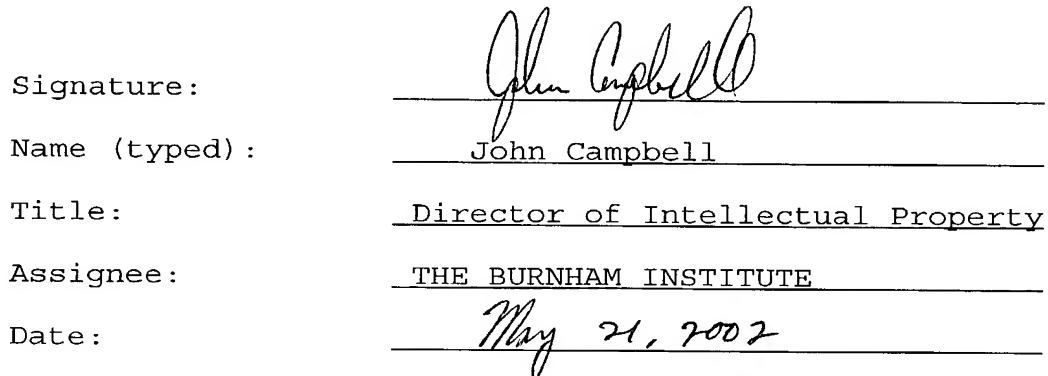 Signature: John Campbell
Name (typed): John Campbell
Title: Director of Intellectual Property
Assignee: THE BURNHAM INSTITUTE
Date: May 21, 2002